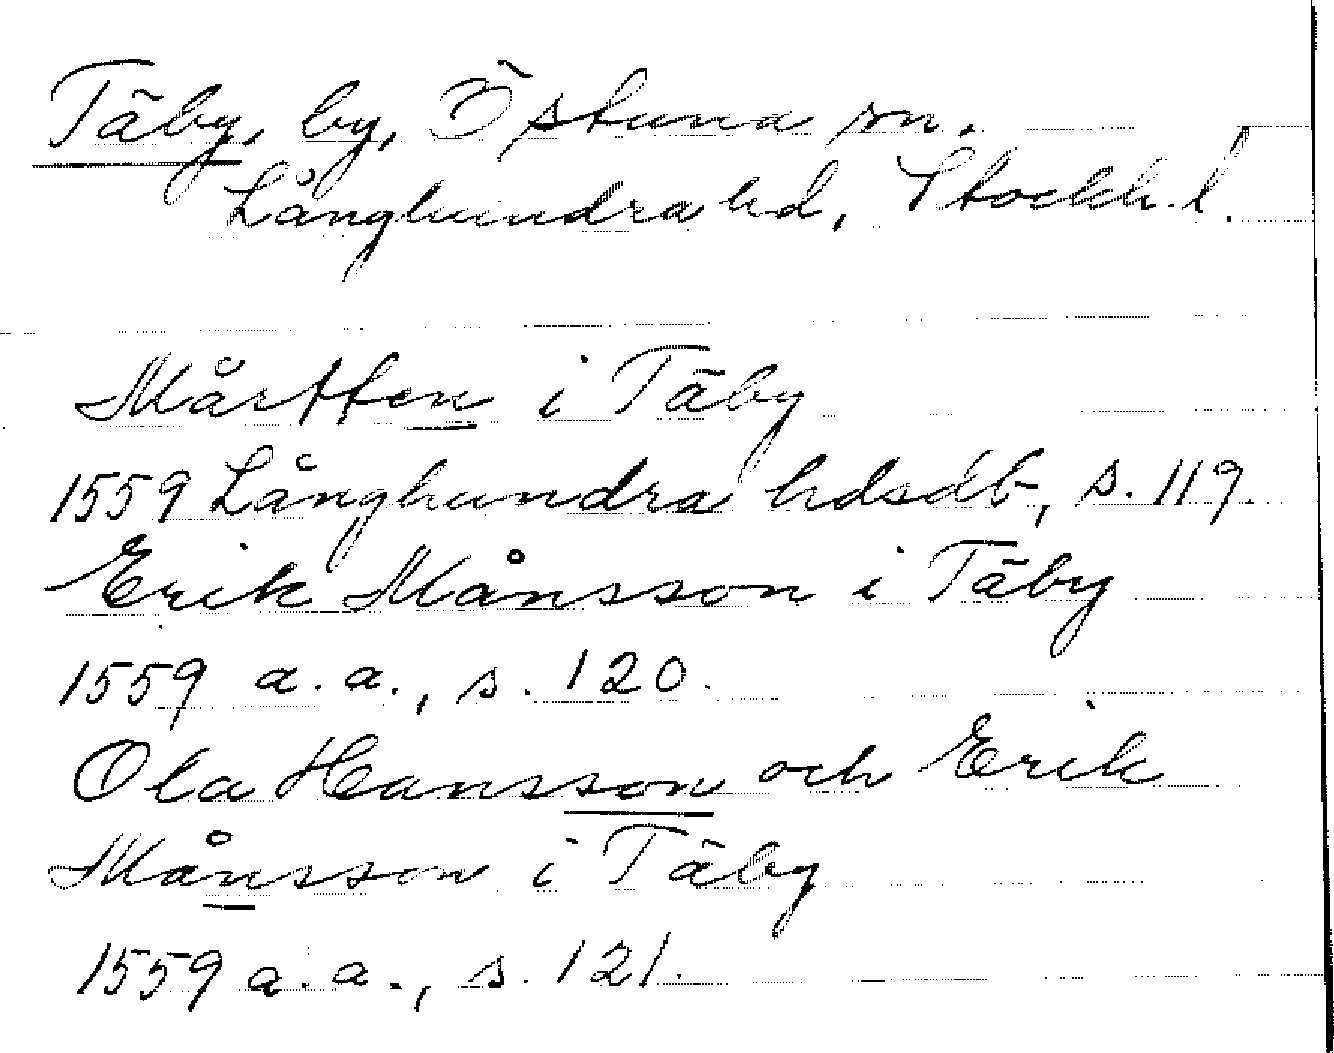 Täby, by, Östuna sn.
Långhundra hd, Stockh. l.
Mårtten i Täby
1559 Långhundra hdsdb, s. 119.
Erik Månsson i Täby
1559 a. a., s. 120.
Ola Hansson och Erik
Månsson i Täby
1559 a. a., s. 121.